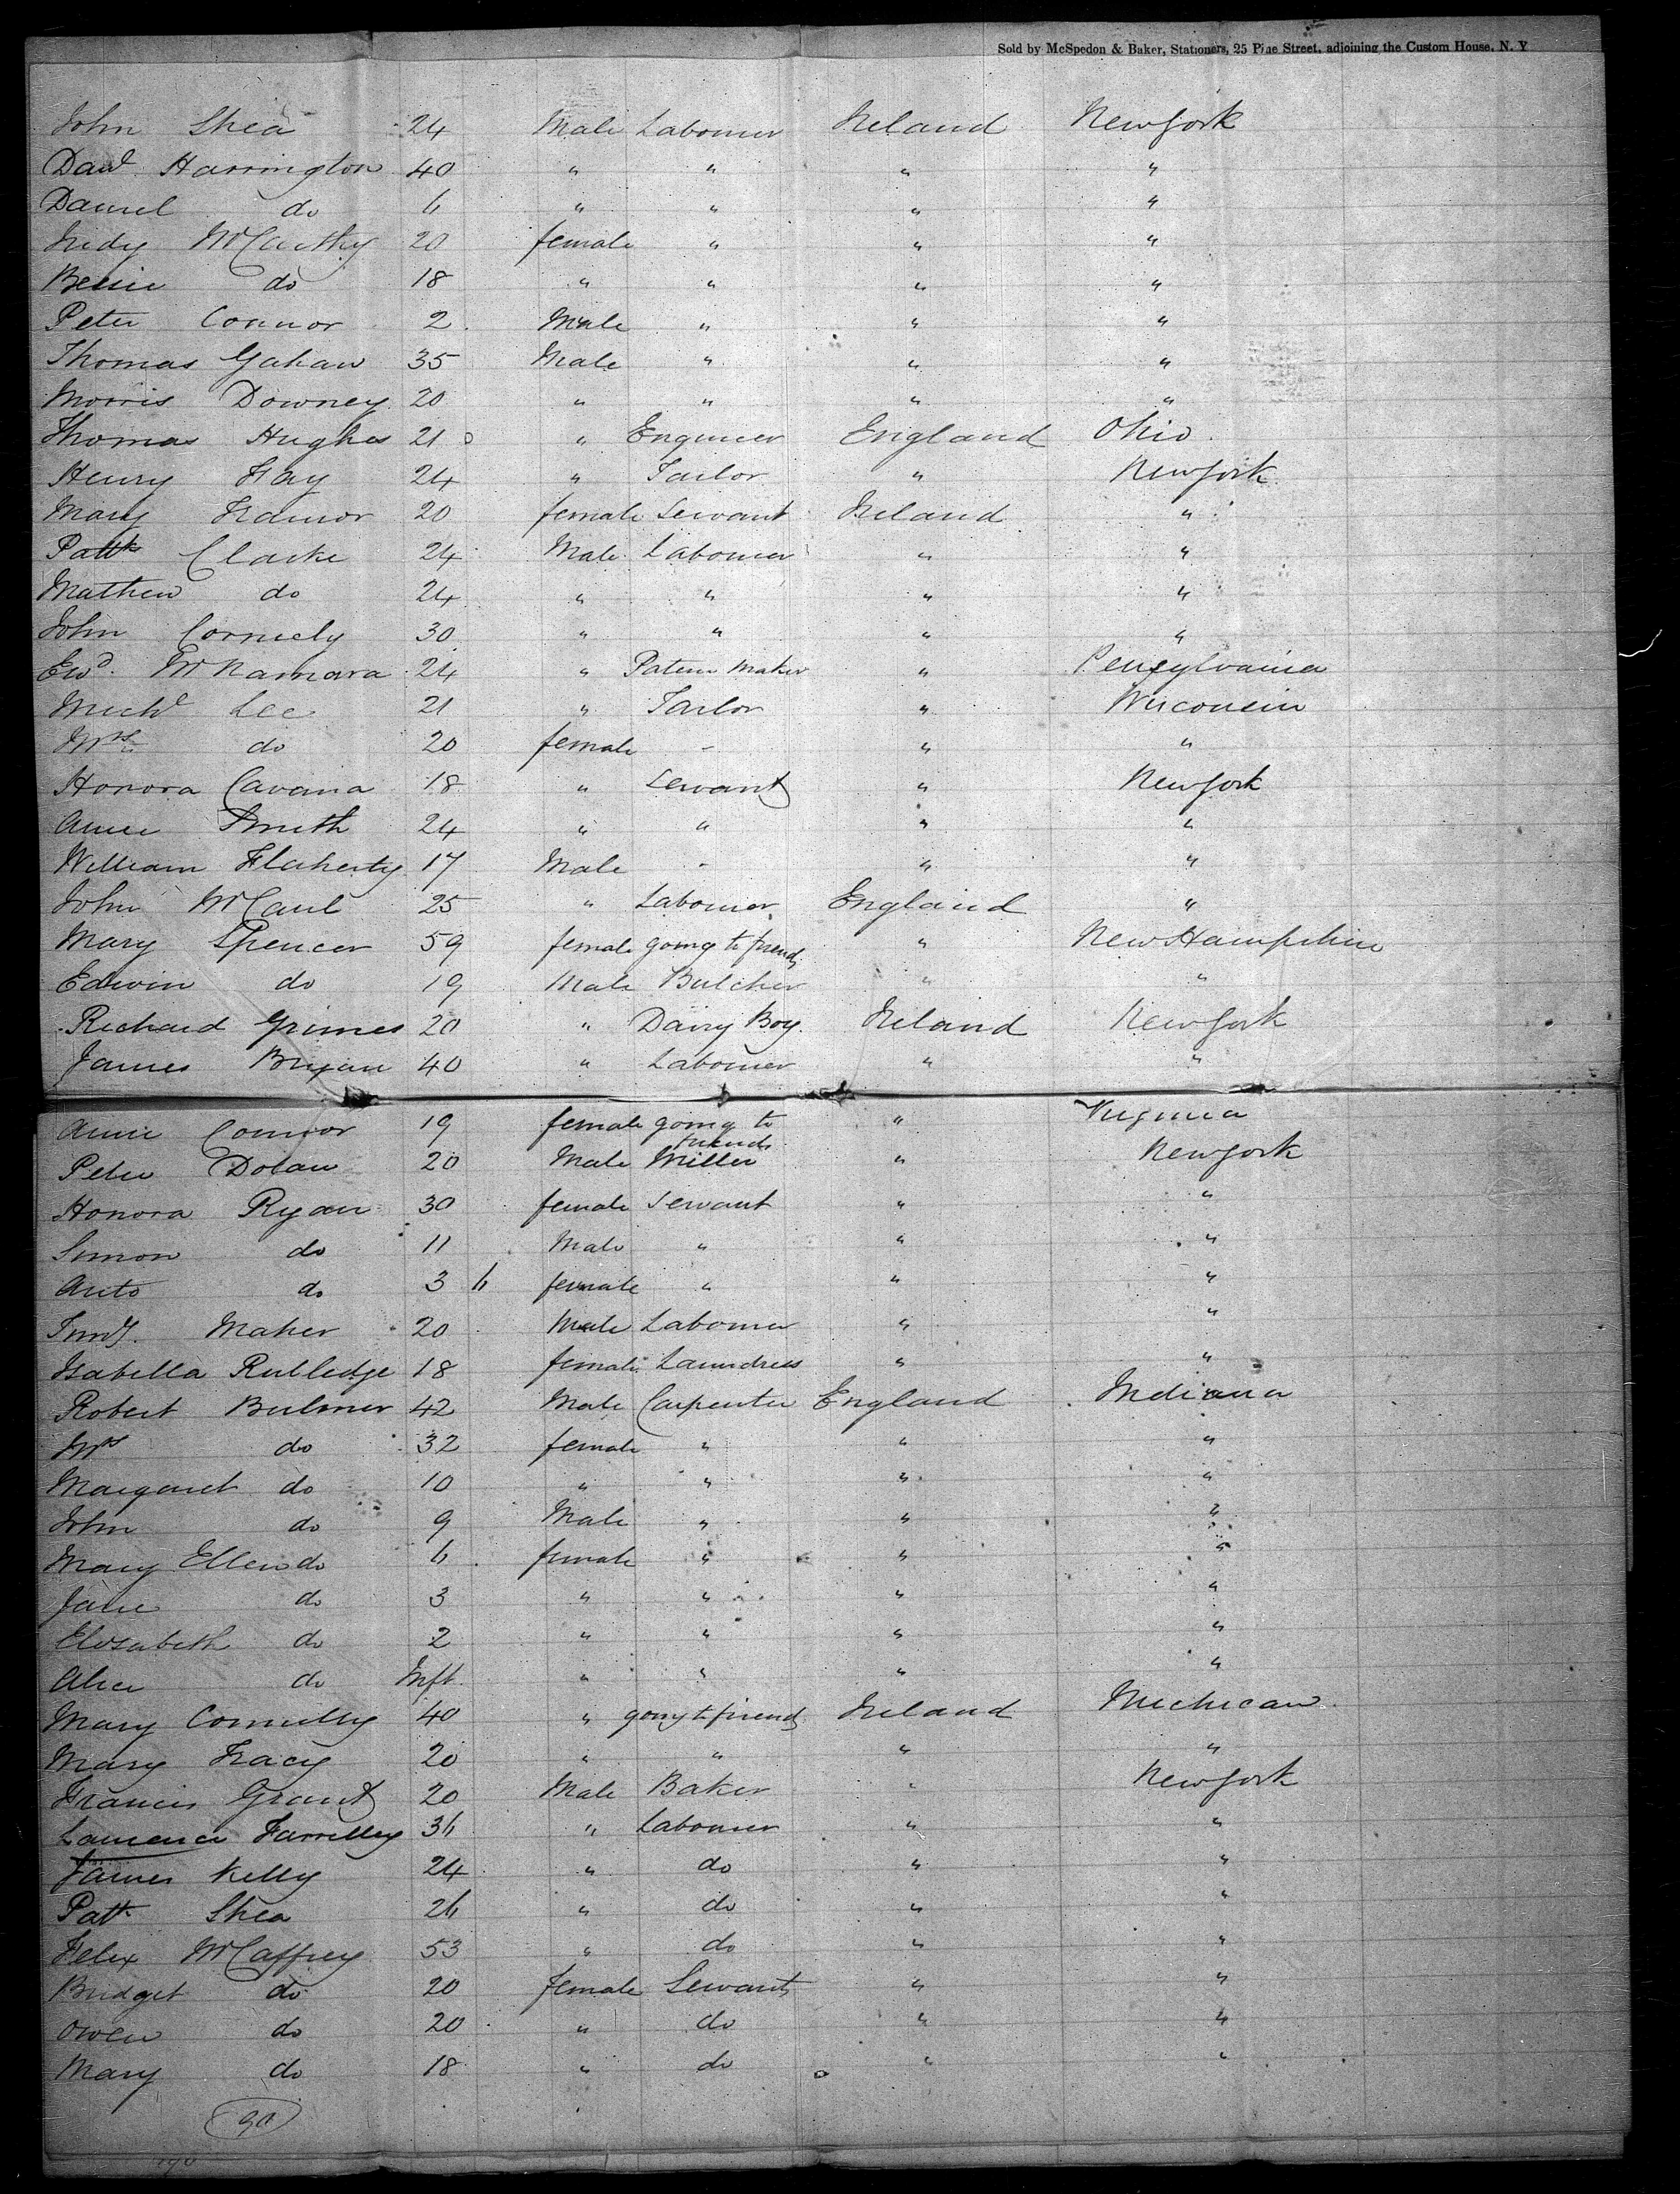 Sold by McSpedon & Baker, Stationers, 25 Pine Street, adjoining the Custom House, N. Y
John Shea 24 Male Labourer Ireland New York
Danl Harrington 40 " " " "
Daniel do 6 " " " "
Judy McCarthy 20 female " " "
Bessie do 18 " " " "
Peter Connor 2 Male " " "
Thomas Gahan 35 Male " " "
Morris Downey 20 " " " "
Thomas Hughes 21 " Engineer England Ohio
Henry Fay 24 " Tailor " New York
Mary 20 female Servant Ireland "
Pattk Clarke 24 Male Labourer " "
Mathew do 24 " " " "
John Cornely 30 " " " "
Ewd McNamara 24 " Patern Maker " Pensylvania
Michl Lee 21 " Tailor " Wisconsin
Mrs do 20 female - " "
Honora Cavana 18 " Servant " New York
Anne Smith 24 " " " "
William Flaherty 17 Male - " "
John McCaul 25 " Labourer England "
Mary Spencer 59 female going to friends " New Hampshire
Edwin do 19 Male Butcher " "
Richard Grimes 20 " Dairy Boy Ireland New York
James Bryan 40 " Labourer " "
Anne Connor 19 female going to friends " Virginia
Peter Dolan 20 Male Miller " New York
Honora Ryan 30 female Servant " "
Simon do 11 Male " " "
do 3 6 female " " "
Maher 20 Male Labourer " "
Isabella Rutledge 18 female Laundress " "
Robert Bulmer 42 Male Carpenter England Indiana
Mrs do 32 female " " "
Margaret do 10 " " " "
John do 9 Male " " "
Mary Ellen do 6 female " " "
Jane do 3 " " " "
Elisabeth do 2 " " " "
Alice do Inft " " " "
Mary Connelly 40 " going to friends Ireland Michican
Mary Tracy 20 " " " "
Francis Grant 20 Male Baker " New York
Laurence Farrelley 36 " Labourer " "
James Kelly 24 " do " "
Patk Shea 26 " do " "
Felix McCaffrey 53 " do " "
Bridget do 20 female Servants " "
Owen do 20 " do " "
Mary do 18 " do " "